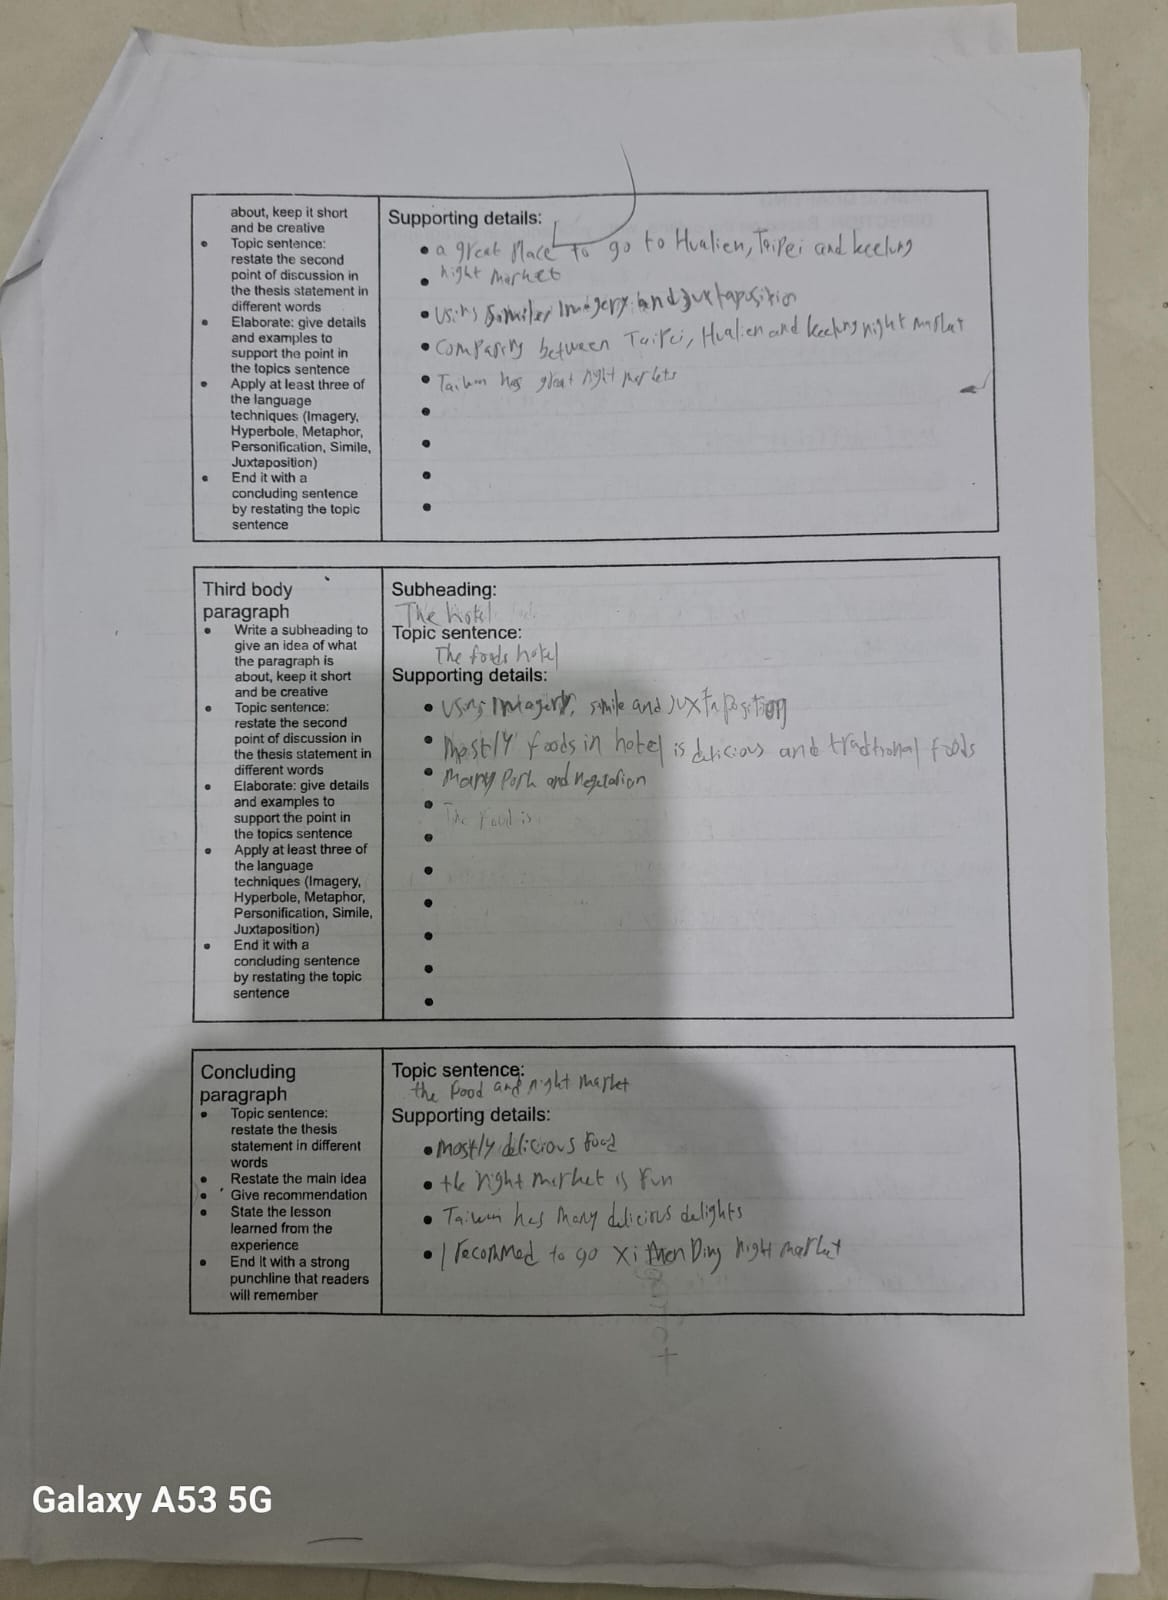 about, keep it short
and be creative
• Topic sentence:
restate the second
point of discussion in
the thesis statement in
different words
• Elaborate: give details
and examples to
support the point in
the topics sentence
• Apply at least three of
the language
techniques (Imagery,
Hyperbole, Metaphor,
Personification, Simile,
Juxtaposition)
• End it with a
concluding sentence
by restating the topic
sentence
Supporting details:
• a great place to go to Hualien, Taipei and keelung
• night market
• Using simile, imagery and juxtaposition
• Comparing between Taipei, Hualien and keelung night market
• Taiwan has great night markets
Third body
paragraph
• Write a subheading to
give an idea of what
the paragraph is
about, keep it short
and be creative
• Topic sentence:
restate the second
point of discussion in
the thesis statement in
different words
• Elaborate: give details
and examples to
support the point in
the topics sentence
• Apply at least three of
the language
techniques (Imagery,
Hyperbole, Metaphor,
Personification, Simile,
Juxtaposition)
• End it with a
concluding sentence
by restating the topic
sentence
Subheading:
The hotel
Topic sentence:
The foods hotel
Supporting details:
• Using imagery, simile and juxtaposition
• Mostly foods in hotel is delicious and traditional foods
• Many Pork and
• The food is
Concluding
paragraph
• Topic sentence:
restate the thesis
statement in different
words
• Restate the main idea
• Give recommendation
• State the lesson
learned from the
experience
• End it with a strong
punchline that readers
will remember
Topic sentence:
the food and night market
Supporting details:
• mostly delicious food
• the night market is fun
• Taiwan has many delicious delights
• I recommed to go Xi men Ding night market
Galaxy A53 5G